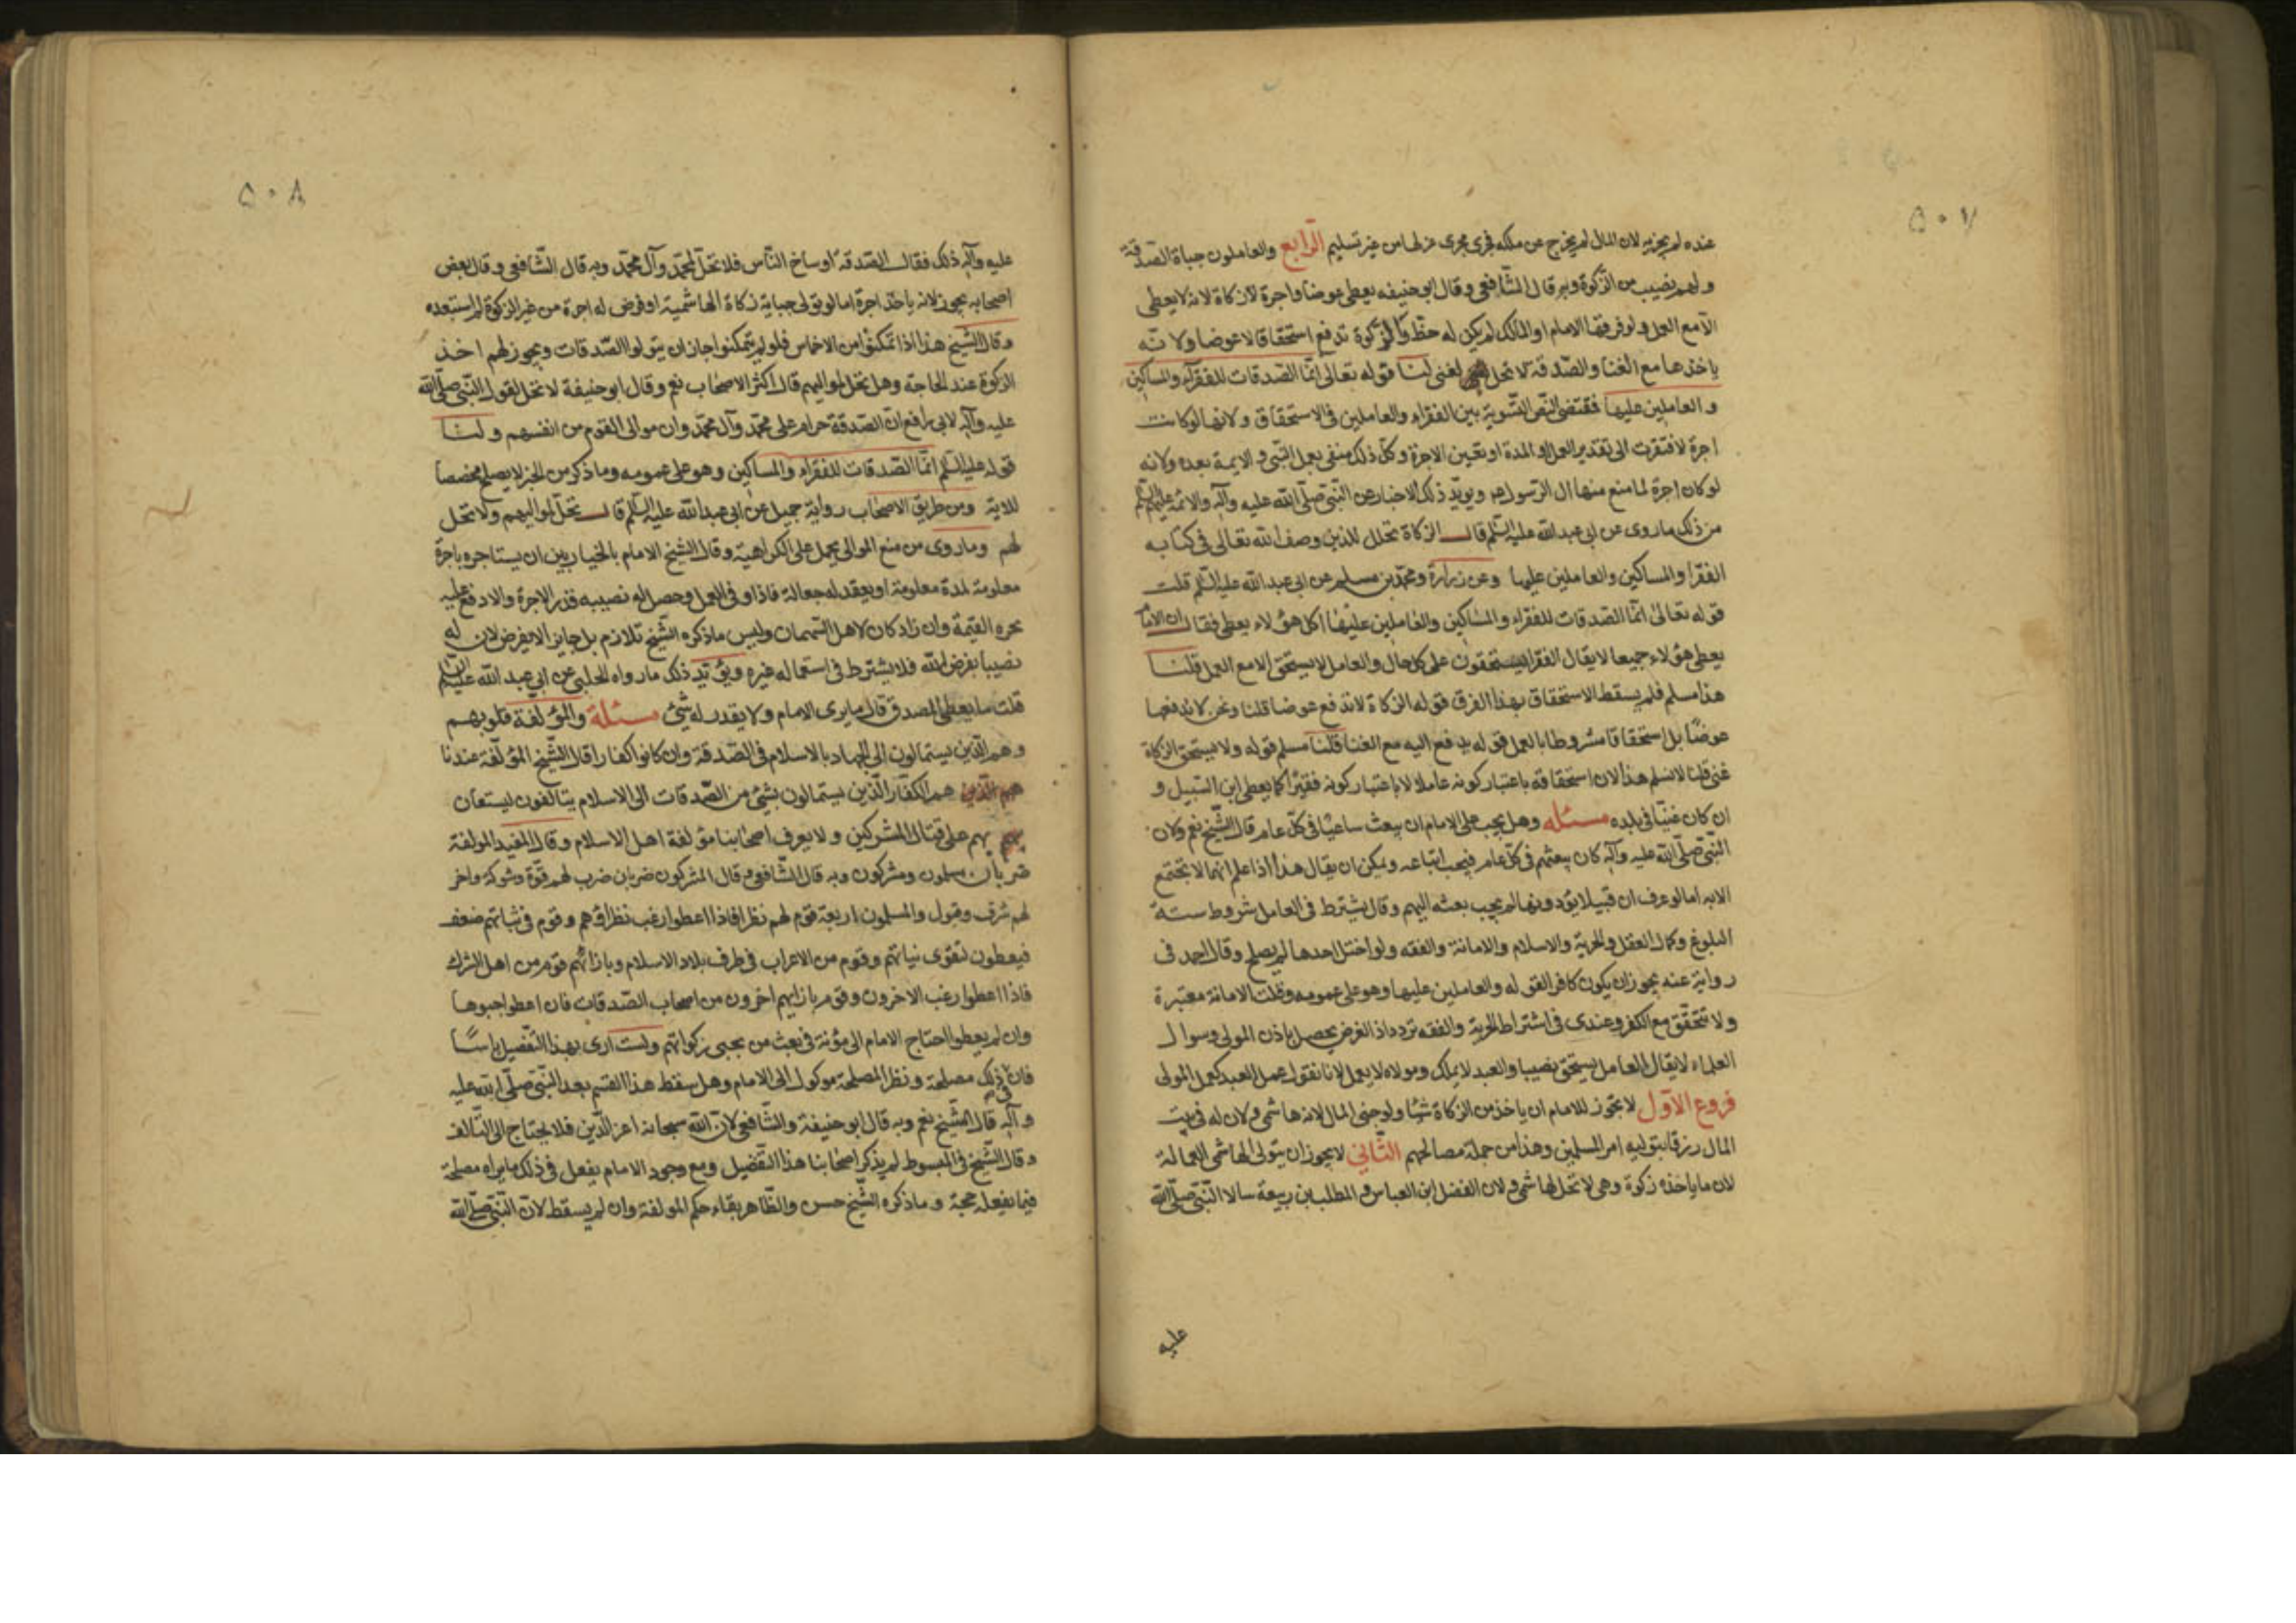 ۵۰۷
عنده لم يجزيه لان المال لم يخرج عن ملكه فجرى مجرى عزلها من غير تسليم الرابع والعاملون جباة الصدقة
ولهم نصيب من الزكوة وبه قال الشافعى وقال ابو حنيفه يعطى عوضا واجرة لا زكاة لانه لا يعطى
الا مع العمل ولو فرقها الامام او المالك لم يكن له حظ والزكوة تدفع استحقاقا لا عوضا ولا نّه
ياخذها مع الغنا والصدقة لا تحل لغنى لنا قوله تعالى انّما الصدقات للفقراء والمساكين
والعاملين عليها فقتضى النص التسوية بين الفقراء والعاملين فى الاستحقاق ولانها لو كانت
اجرة لافتقرت الى تقدير العمل او المدة او تعيين الاجرة وكل ذلك منفى بعمل النبى و الايمة بعده ولانه
لو كان اجرة لما منع منها ال الرسول ويويّد ذلك الاخبار عن النّبى صلّى الله عليه وآله والائمة عليهم السلم
من ذلك ما روى عن ابى عبد الله عليه السّلم قال الزكاة تحلل للذين وصف الله تعالى فى كتابه
الفقرا والمساكين والعاملين عليها وعن زرارة ومحمّد بن مسلم عن ابى عبد الله عليه السّلم قلت
قوله تعالى انّما الصّدقات للفقراء والمساكين والعاملين عليها اكل هؤلاء يعطى فقال ان الامام
يعطى هؤلاء جميعا لا يقال الفقرا يستحقون على كل حال والعامل لا يستحق الا مع العمل قلنا
هذا مسلم فلم يسقط الاستحقاق بهذا الفرق قوله الزكاة لا تدفع عوضا قلنا ونحن لا ندفعها
عوضًا بل استحقاقا مشروطا بالعمل قوله يدفع اليه مع الغنا قلنا مسلم قوله ولا يستحق الزكاة
غنى قلنا لا نسلم هذا لان استحقاقه باعتبار كونه عاملا لا باعتبار كونه فقيرًا كما يعطى ابن السّبيل و
ان كان غنيّا فى بلده مسئله وهل يجب على الامام ان يبعث ساعيًا فى كل عام قال الشّيخ نعم ولان
النّبى صلّى الله عليه وآله كان يبعثهم فى كلّ عام فيجب اتباعه ويمكن ان يقال هذا اذا علم انها لا تجتمع
الا به اما لو عرف ان قبيلا يؤدونها لم يجب بعثه اليهم وقال يشترط فى العامل شروط ستة
البلوغ وكمال العقل والحرية والاسلام والامانة والفقه ولو اختل احدها لم يصلح وقال احمد فى
رواية عنه يجوز ان يكون كافرا لقوله والعاملين عليها وهو على عمومه وقلت الامانة معتبرة
ولا تتحقّق مع الكفر وعندى فى اشتراط الحرية والفقه تردد اذ الغرض يحصل باذن المولى وسوال
العلماء لا يقال العامل يستحق نصيبا والعبد لا يملك ومولاه لا يعمل لانا نقول عمل العبد كعمل المولى
فروع الاوّل لا يجوز للامام ان ياخذ من الزكاة شيئا ولو جبى المال لانه هاشمى ولان له فى بيت
المال رزقا بتوليه امر المسلمين وهذا من جملة مصالحهم الثّانى لا يجوز ان يتولى الهاشمى العمالة
لان ما ياخذه زكوة وهى لا تحل لهاشمى ولان الفضل ابن العباس والمطلب بن ربيعة سالا النّبى صلّى الله
عليه
۵۰۸
عليه وآله ذلك فقال الصّدقة اوساخ النّاس فلا تحلّ لمحمّد وآل محمّد وبه قال الشّافعى وقال بعض
اصحابه يجوز لانه ياخذ اجرة اما لو تولى جباية زكاة الهاشمية او فرض له اجرة من غير الزكوة لم استبعده
وقال الشّيخ هذا اذا تمكّنوا من الاخماس فلو لم يتمكنوا جاز ان يتولوا الصّدقات ويجوز لهم اخذ
الزكوة عند الحاجة وهل تحل لمواليهم قال اكثر الاصحاب نعم وقال ابو حنيفة لا تحل لقول النّبى صلّى الله
عليه وآله لابى رافع انّ الصّدقة حرام على محمّد وآل محمّد وان موالى القوم من انفسهم ولنا
قوله عليه السّلم انّما الصّدقات للفقراء والمساكين وهو على عمومه وما ذكر من الخبر لا يصلح مخصصا
للاية ومن طريق الاصحاب رواية جميل عن ابى عبد الله عليه السّلم قال تحلّ لمواليهم ولا تحل
لهم وما روى من منع الموالى يحمل على الكراهية وقال الشيخ الامام بالخيار بين ان يستاجره باجرة
معلومة لمدة معلومة او يعقد له جعالة فاذا وفى العمل وحصل له نصيبه قدر الاجرة والا دفع عليه
وان زاد كان لاهل السّهمان وليس ما ذكره الشّيخ تلازم بل جايز الا يفرض لان له
نصيبا بفرض الله فلا يشترط فى استعماله غيره ويؤيّد ذلك ما رواه الحلبى عن ابى عبد الله عليه السّلم
قلت ما يعطى المصدق قال ما يرى الامام ولا يقدر له شئ مسئلة والمؤلّفة قلوبهم
وهم الّذين يستمالون الى الجهاد بالاسلام فى الصّدقة وان كانوا كفارا قال الشّيخ المؤلّفة عندنا
هم الّذين هم الكفّار الّذين يستمالون بشئ من الصّدقات الى الاسلام يتالفون ليستعان
بهم بهم على قتال المشركين ولا يعرف اصحابنا مؤلفة اهل الاسلام وقال المفيد المولفة
ضربان مسلمون ومشركون وبه قال الشّافعى وقال المشركون ضربان ضرب لهم قوّة وشوكة واخر
لهم شرف وقبول والمسلمون اربعة قوم لهم نظرا فاذا اعطوا رغب نظراؤهم وقوم فى نياتهم ضعف
فيعطون لتقوى نياتهم وقوم من الاعراب فى طرف بلاد الاسلام وبازائهم قوم من اهل الشرك
فاذا اعطوا رغب الاخرون وقوم بازايهم اخرون من اصحاب الصّدقات فان اعطوا جبوها
وان لم يعطوا احتاج الامام الى مؤنة فى بعث من يجبى زكواتهم ولست ارى بهذا التّفصيل باسًا
فان فى ذلك مصلحة ونظر المصلحة موكول الى الامام وهل سقط هذا القسم بعد النّبى صلّى الله عليه
وآله قال الشّيخ نعم وبه قال ابو حنيفة والشّافعى لانّ الله سبحانه اعز الدّين فلا يحتاج الى التّالف
وقال الشّيخ فى المبسوط لم يذكر اصحابنا هذا التفضيل ومع وجود الامام يفعل فى ذلك ما يراه مصلحة
فيما يفعله حجة وما ذكره الشّيخ حسن والظّاهر بقاء حكم المولفة وان لم يسقط لانّ النّبى صلّى الله